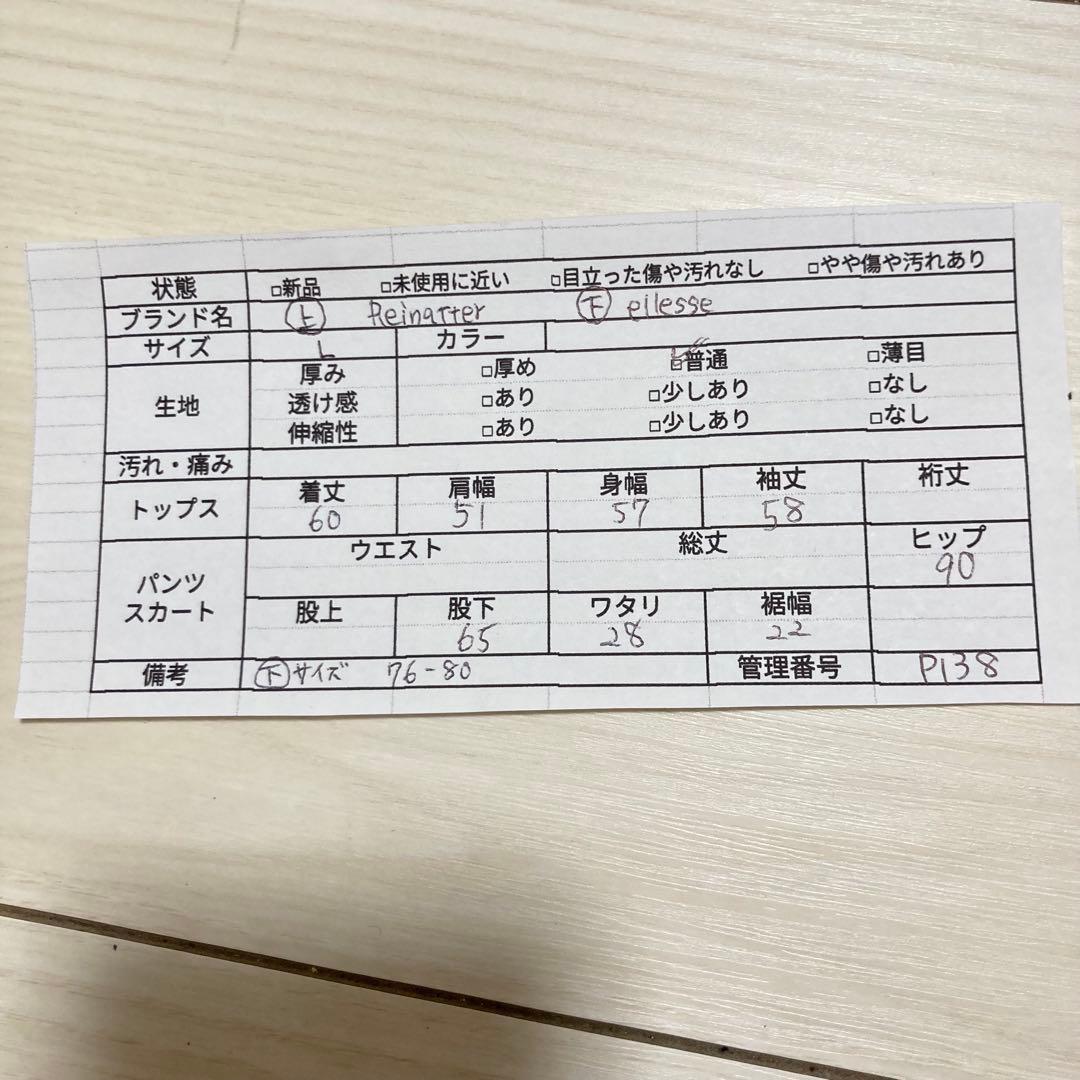 状態 □新品 □未使用に近い □目立った傷や汚れなし □やや傷や汚れあり
ブランド名 上 Reinatter 下 ellesse
サイズ L カラー
生地 厚み □厚め ☑普通 □薄目
透け感 □あり □少しあり □なし
伸縮性 □あり □少しあり □なし
汚れ・痛み
トップス 着丈 肩幅 身幅 袖丈 裄丈
60 51 57 58
パンツ スカート ウエスト 総丈 ヒップ
90
股上 股下 ワタリ 裾幅
65 28 22
備考 下サイズ 76-80 管理番号 P138